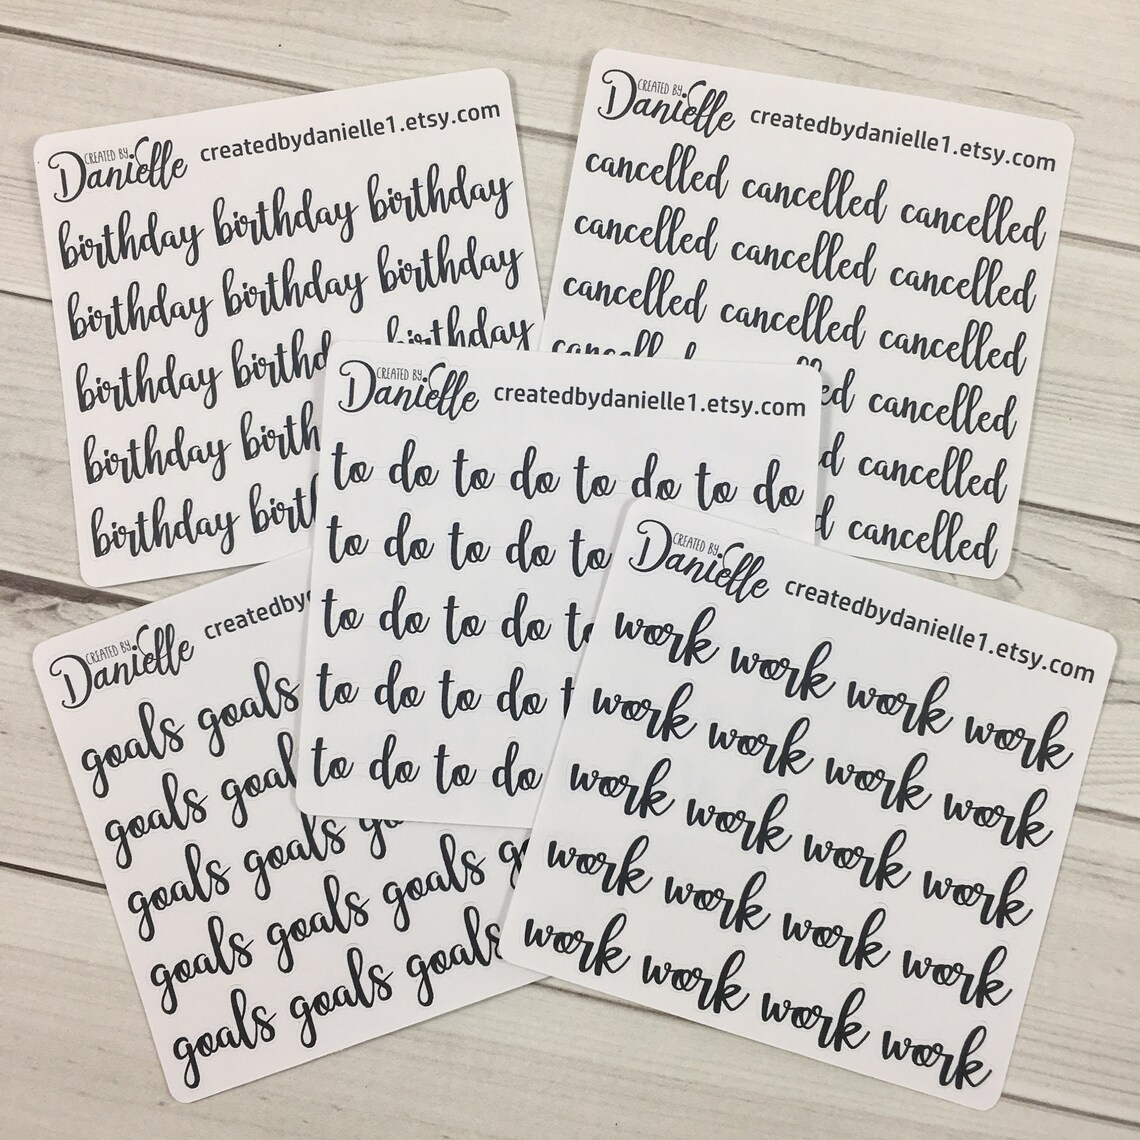 CREATED BY Danielle createdbydanielle1.etsy.com
birthday birthday birthday
birthday birthday birthday
birthday birthday
birthday
birthday
CREATED BY Danielle createdbydanielle1.etsy.com
cancelled cancelled cancelled
cancelled cancelled cancelled
cancelled cancelled cancelled
cancelled
cancelled
cancelled
CREATED BY Danielle createdbydanielle1.etsy.com
to do to do to do to do
to do to do to
to do to do
to do to do
to do to do
CREATED BY Danielle
goals goals
goals
goals goals
goals goals goals
goals goals goals
CREATED BY Danielle createdbydanielle1.etsy.com
work work work work
work work work work
work work work work
work work work work
work work work work